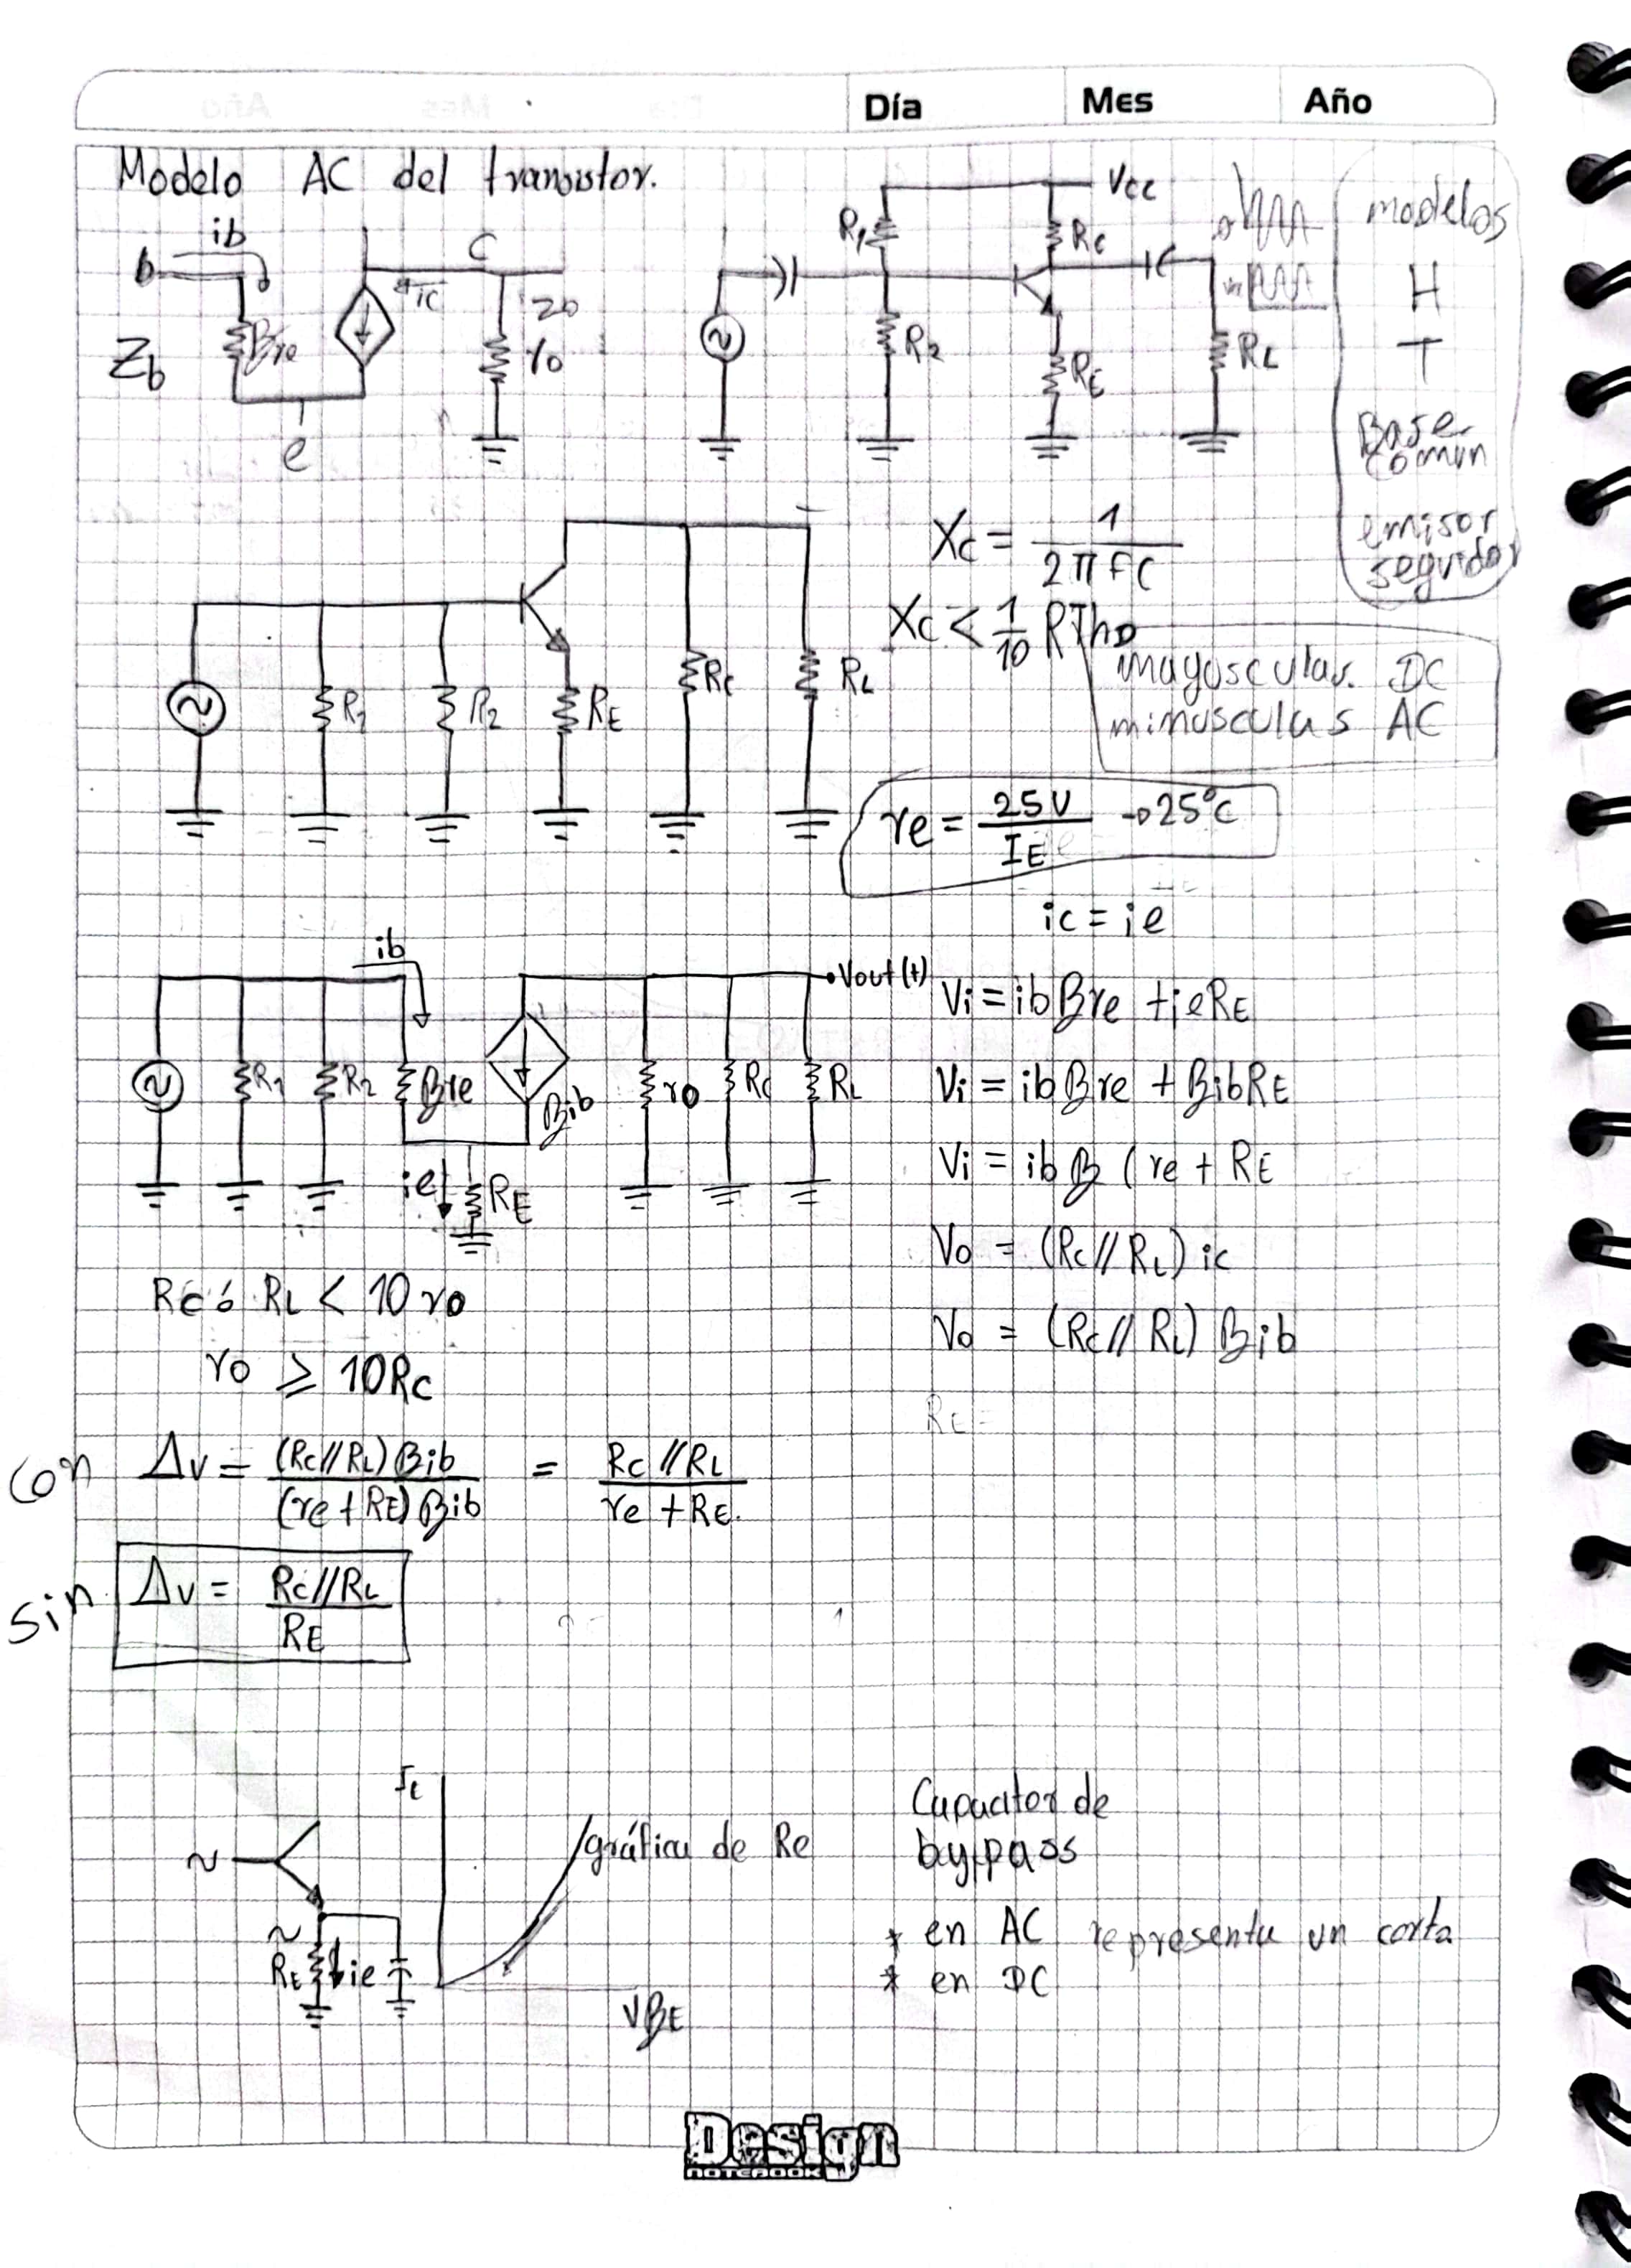 Día Mes Año
Modelo AC del transistor.
ib
b
C
ic
Zo
Zb
Bre
ro
e
Vcc
R1
Rc
R2
RE
RL
modelos
H
T
Base
común
emisor
seguidor
Xc = 1 / 2πFC
Xc < 1/10 RTh
mayusculas. DC
minusculas AC
R1
R2
RE
Rc
RL
re = 25V / IE → 25°C
ic = ie
ib
Vout(t)
R1
R2
Bre
Bib
ro
Rc
RL
ie
RE
Vi = ib Bre + ieRE
Vi = ib Bre + BibRE
Vi = ib B (re + RE
Vo = (Rc//RL) ic
Vo = (Rc//RL) Bib
Rc ó RL < 10 ro
ro ≥ 10Rc
RE =
con Δv = (Rc//RL) Bib / (re + RE) Bib = Rc//RL / re + RE.
sin Δv = Rc//RL / RE
gráfica de Re
VBE
RE
ie
Capacitor de
bypass
* en AC representa un corto
* en DC
Design
NOTEBOOK